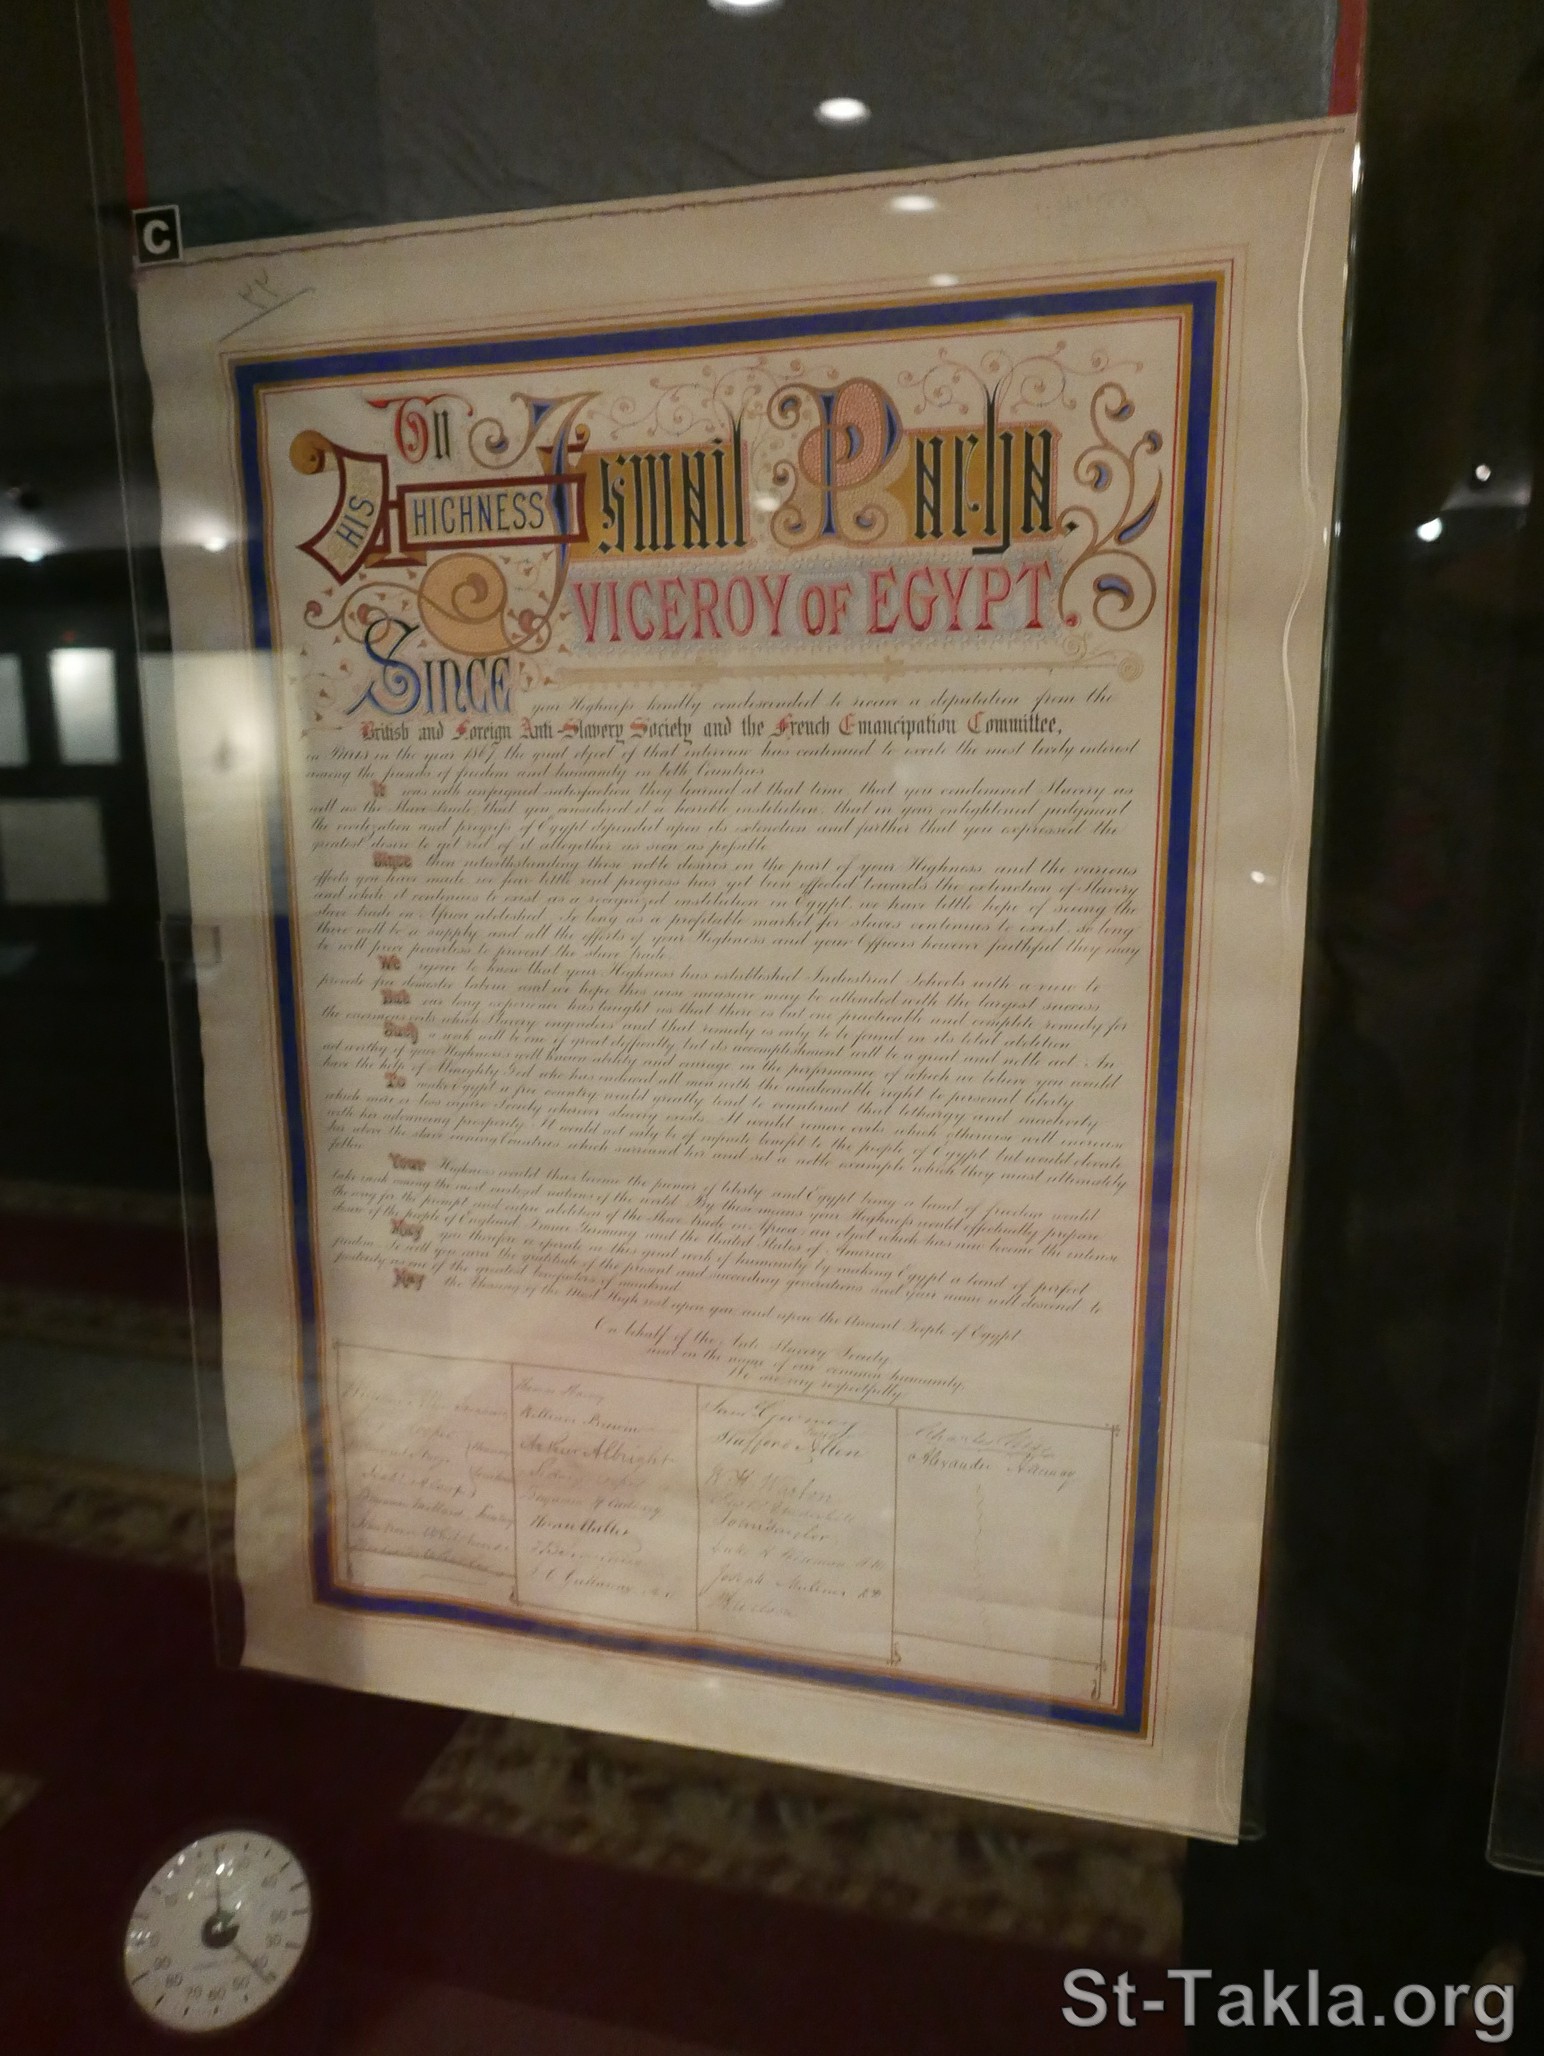 C
٢٢
To
HIS HIGHNESS Ismail Pacha.
VICEROY OF EGYPT.
SINCE your Highness kindly condescended to receive a deputation from the
British and Foreign Anti-Slavery Society and the French Emancipation Committee,
in PARIS in the year 1867, the great object of that interview has continued to excite the most lively interest
among the friends of freedom and humanity in both Countries
It was with unfeigned satisfaction they learned at that time, that you condemned Slavery as
well as the Slave trade, that you considered it a horrible institution, that in your enlightened judgment
the civilization and progress of Egypt depended upon its extinction and further that you expressed the
greatest desire to get rid of it altogether as soon as possible
Since then notwithstanding these noble desires on the part of your Highness and the various
efforts you have made we fear little real progress has yet been effected towards the extinction of Slavery
and while it continues to exist as a recognized institution in Egypt, we have little hope of seeing the
slave trade in Africa abolished. So long as a profitable market for slaves continues to exist, so long
there will be a supply, and all the efforts of your Highness and your Officers however faithful they may
be will prove powerless to prevent the slave trade.
We rejoice to know that your Highness has established Industrial Schools with a view to
provide free domestic labour and we hope this wise measure may be attended with the largest success
But our long experience has taught us that there is but one practicable and complete remedy for
the enormous evils which Slavery engenders and that remedy is only to be found in its total abolition
Such a work will be one of great difficulty but its accomplishment will be a great and noble act. An
act worthy of your Highness's well known ability and courage in the performance of which we believe you would
have the help of Almighty God who has endowed all men with the unalienable right to personal liberty
To make Egypt a free country would greatly tend to counteract that lethargy and inactivity
which more or less injure Society wherever slavery exists. It would remove evils which otherwise will increase
with her advancing prosperity. It would not only be of infinite benefit to the people of Egypt but would elevate
her above the slave owning Countries which surround her and set a noble example which they must ultimately
follow
Your Highness would thus become the pioneer of liberty and Egypt being a land of freedom would
take rank among the most civilized nations of the world. By these means your Highness would effectually prepare
the way for the prompt and entire abolition of the Slave trade in Africa, an object which has now become the intense
desire of the people of England France Germany and the United States of America
May you therefore co operate in this great work of humanity by making Egypt a land of perfect
freedom. So will you earn the gratitude of the present and succeeding generations and your name will descend to
posterity as one of the greatest benefactors of mankind
May the blessing of the Most High rest upon you and upon the Ancient People of Egypt
On behalf of the Anti Slavery Society,
and in the name of our common humanity,
We are very respectfully
William Brown
Arthur Albright
Stafford Allen
Alexander
Joseph
St-Takla.org